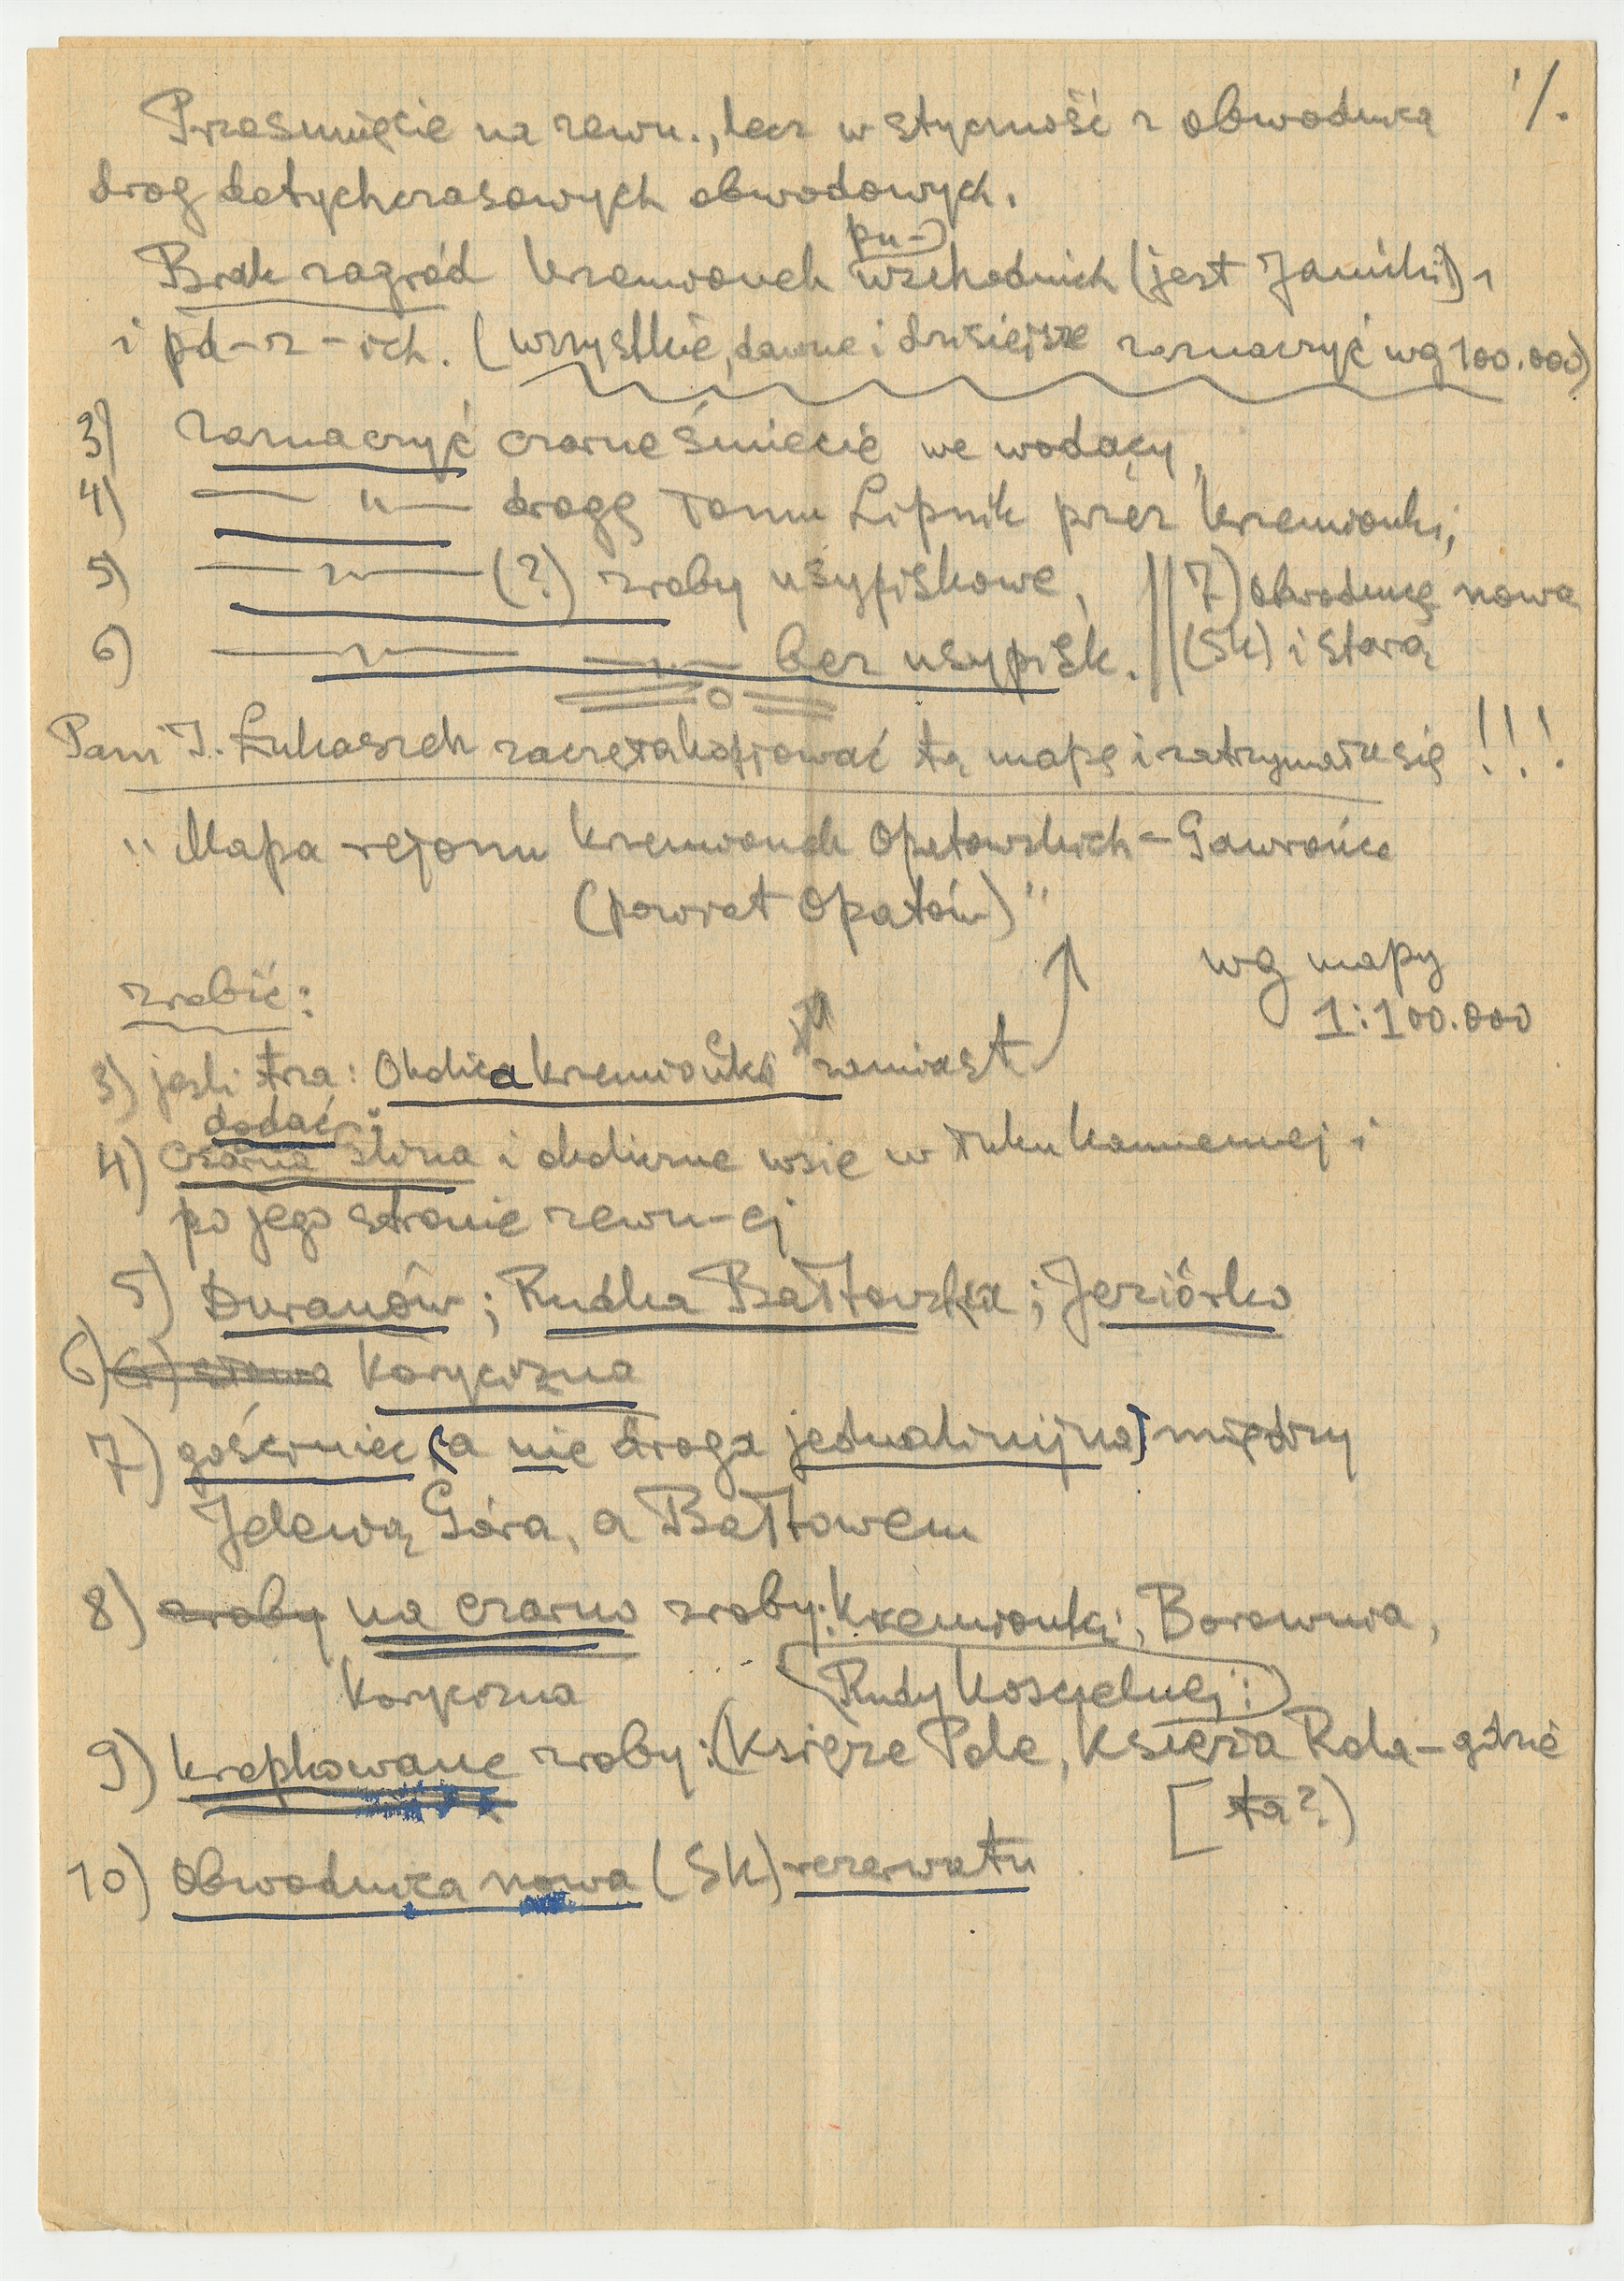 Przesunięcie na zewn., lecz w styczność z obwodnicą ./.
dróg dotychczasowych obwodowych.
pn-
Brak zagród krzemionek wschodnich (jest Janicki)
i pd-z-ich. (wszystkie, dawne i dzisiejsze zaznaczyć wg 100.000)
3) zaznaczyć czarne śmiecie we wodący,
4) — " — drogę Lipnik przez krzemionki;
5) — " — (?) zroby usypiskowe, || 7) obwodnicę nową
6) — " — — " — bez usypisk. || (SK) i starą
= o =
Pani J. Łukaszek zaczęła kopiować tą mapę i zatrzymała się !!!
"Mapa rejonu krzemionek Opatowskich – Gawrońca
(powiat Opatów)"
wg mapy
1:100.000
zrobić:
3) jeśli trza: Okolica krzemionki zamiast
dodać:
4) czarna glina i okoliczne wsie w łuku kamiennej i
po jego stronie zewn-ej
5) Duranów; Rudka Bałtowska; Jeziórko
6) Korycizna
7) gościniec (a nie droga jednolinijna) między
Jelewą Góra, a Bałtowem
8) zroby na czarno zroby: Krzemionki, Borownia,
Korycizna (Rudy Kościelnej:)
9) kropkowane zroby: (Księże Pole, Księża Rola – gdzie
[ ta?)
10) Obwodnica nowa (SK) rezerwatu